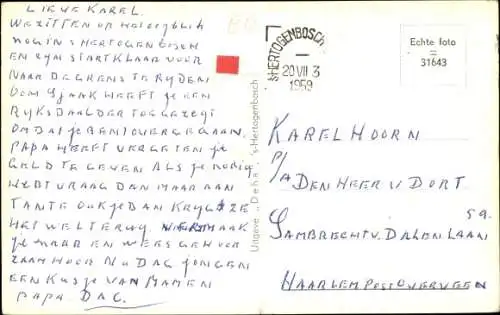 LIEWE KAREL.
WE ZITTEN OP HET OOGENBLIK
NOG IN S HERTOGENBOSCH
EN ZYN STARTKLAAR VOOR
NAAR DE GRENS TE RYDEN
OOM SJAAK HEEFT JE EEN
RYKSDAALDER TOEGEZEGT
OMDAT JE BENT OVERGEGAAN.
PAPA HEEFT VERGETEN JE
GELD TE GEVEN ALS JE NODIG
HEBT VRAAG DAN MAAR AAN
TANTE OUK JE DAN KRYG JE ZE
HET WEL TERUG. VERMAAK
JE MAAR EN WEES GEHOOR
ZAAM HOOR NU DAG JONGEN
EEN KUSJE VAN MAMEN
PAPA DAG.
Uitgave „Deha", 's-Hertogenbosch
'S HERTOGENBOSCH
20 VII 3
1959
Echte foto
=
31643
KAREL HOORN
P/A
DEN HEER V DORT
59.
LAMBRECHT V. DALEN LAAN
HAARLEM POST OVERVEEN